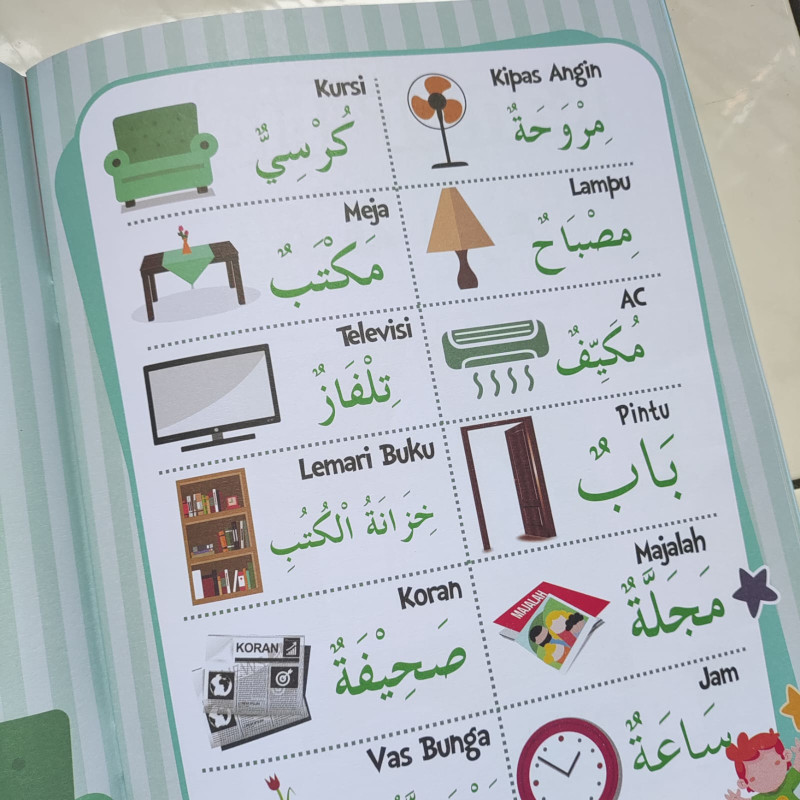 Kursi
كُرْسِيٌّ
Kipas Angin
مِرْوَحَةٌ
Meja
مَكْتَبٌ
Lampu
مِصْبَاحٌ
Televisi
تِلْفَازٌ
AC
مُكَيِّفٌ
Lemari Buku
خِزَانَةُ الْكُتُبِ
Pintu
بَابٌ
Koran
KORAN
صَحِيْفَةٌ
Majalah
MAJALAH
مَجَلَّةٌ
Vas Bunga
Jam
سَاعَةٌ